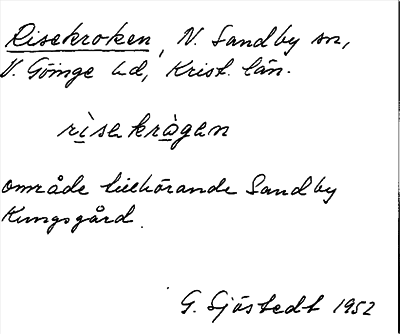 Risekroken, N. Sandby sn,
V. Göinge hd, Krist. län.
risekrågen
område tillhörande Sandby
Kungsgård.
G. Sjöstedt 1952